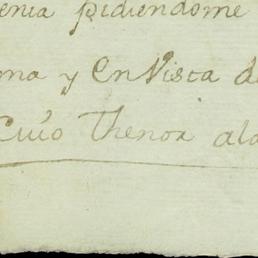 enia pidiendome
ma y en Vista de
Cuio Thenor ala